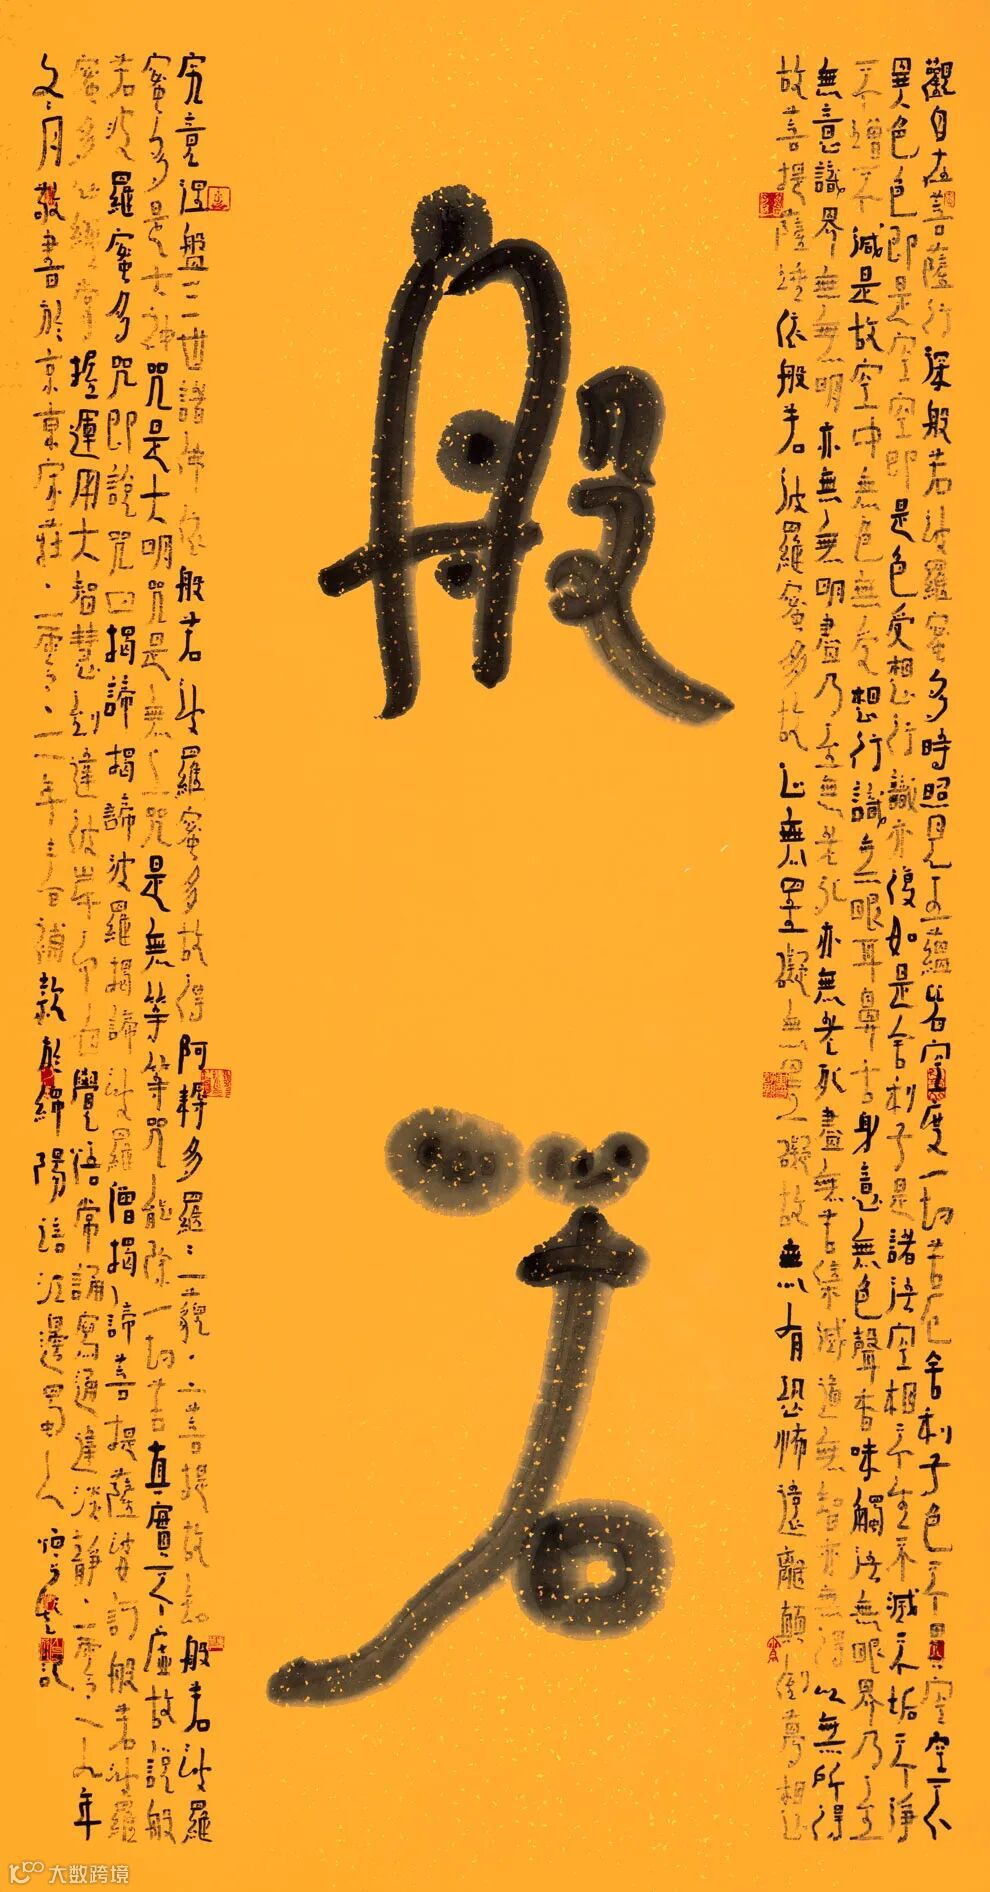 觀自在菩薩行深般若波羅蜜多時照見五蘊皆空度一切苦厄舍利子色不異空空不
異色色即是空空即是色受想行識亦復如是舍利子是諸法空相不生不滅不垢不淨
不增不減是故空中無色無受想行識無眼耳鼻舌身意無色聲香味觸法無眼界乃至
無意識界無無明亦無無明盡乃至無老死亦無老死盡無苦集滅道無智亦無得以無所得
故菩提薩埵依般若波羅蜜多故心無罣礙無罣礙故無有恐怖遠離顛倒夢想
般若
究竟涅盤三世諸佛依般若波羅蜜多故得阿耨多羅三藐三菩提故知般若波羅
蜜多是大神咒是大明咒是無上咒是無等等咒能除一切苦真實不虛故說般
若波羅蜜多咒即說咒曰揭諦揭諦波羅揭諦波羅僧揭諦菩提薩婆訶般若波羅
蜜多心經常握運用大智慧到達彼岸自覺悟常誦寫通達淡靜二零一九年
月敬書於京東宋莊二零二一年補款於綿陽涪江邊記
大数跨境